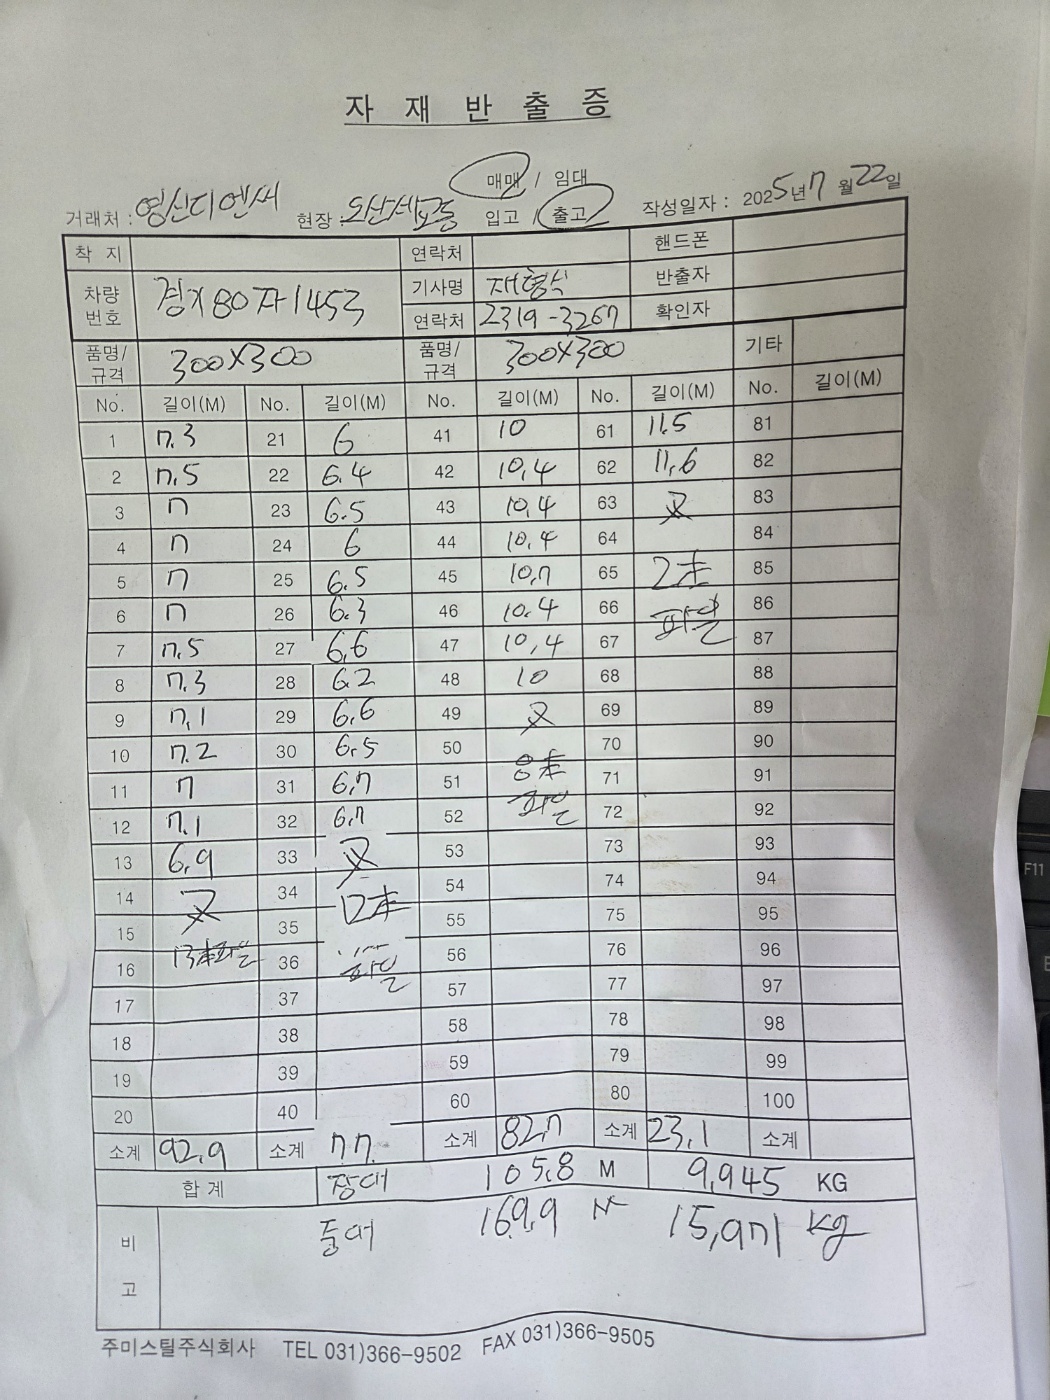 자 재 반 출 증
매매 / 임대
거래처 : 영신디엔씨 현장 : 오산세교동 입고 / 출고 작성일자 : 2025년 7월 22일
착 지 연락처 핸드폰
차량번호 경기80자1453 기사명 재형식 반출자
연락처 2319-3267 확인자
품명/규격 300X300 품명/규격 300X300 기타
No. 길이(M) No. 길이(M) No. 길이(M) No. 길이(M) No. 길이(M)
1 7.3 21 6 41 10 61 11.5 81
2 7.5 22 6.4 42 10.4 62 11.6 82
3 7 23 6.5 43 10.4 63 又 83
4 7 24 6 44 10.4 64 84
5 7 25 6.5 45 10.7 65 2本 85
6 7 26 6.3 46 10.4 66 파일 86
7 7.5 27 6.6 47 10.4 67 87
8 7.3 28 6.2 48 10 68 88
9 7.1 29 6.6 49 又 69 89
10 7.2 30 6.5 50 70 90
11 7 31 6.7 51 8本 71 91
12 7.1 32 6.7 52 파일 72 92
13 6.9 33 又 53 73 93
14 又 34 12本 54 74 94
15 35 55 75 95
16 13本파일 36 파일 56 76 96
17 37 57 77 97
18 38 58 78 98
19 39 59 79 99
20 40 60 80 100
소계 92.9 소계 77. 소계 82.7 소계 23.1 소계
합 계 장대 105.8 M 9,945 KG
비고 169.9 M 15,971 kg
주미스틸주식회사 TEL 031)366-9502 FAX 031)366-9505